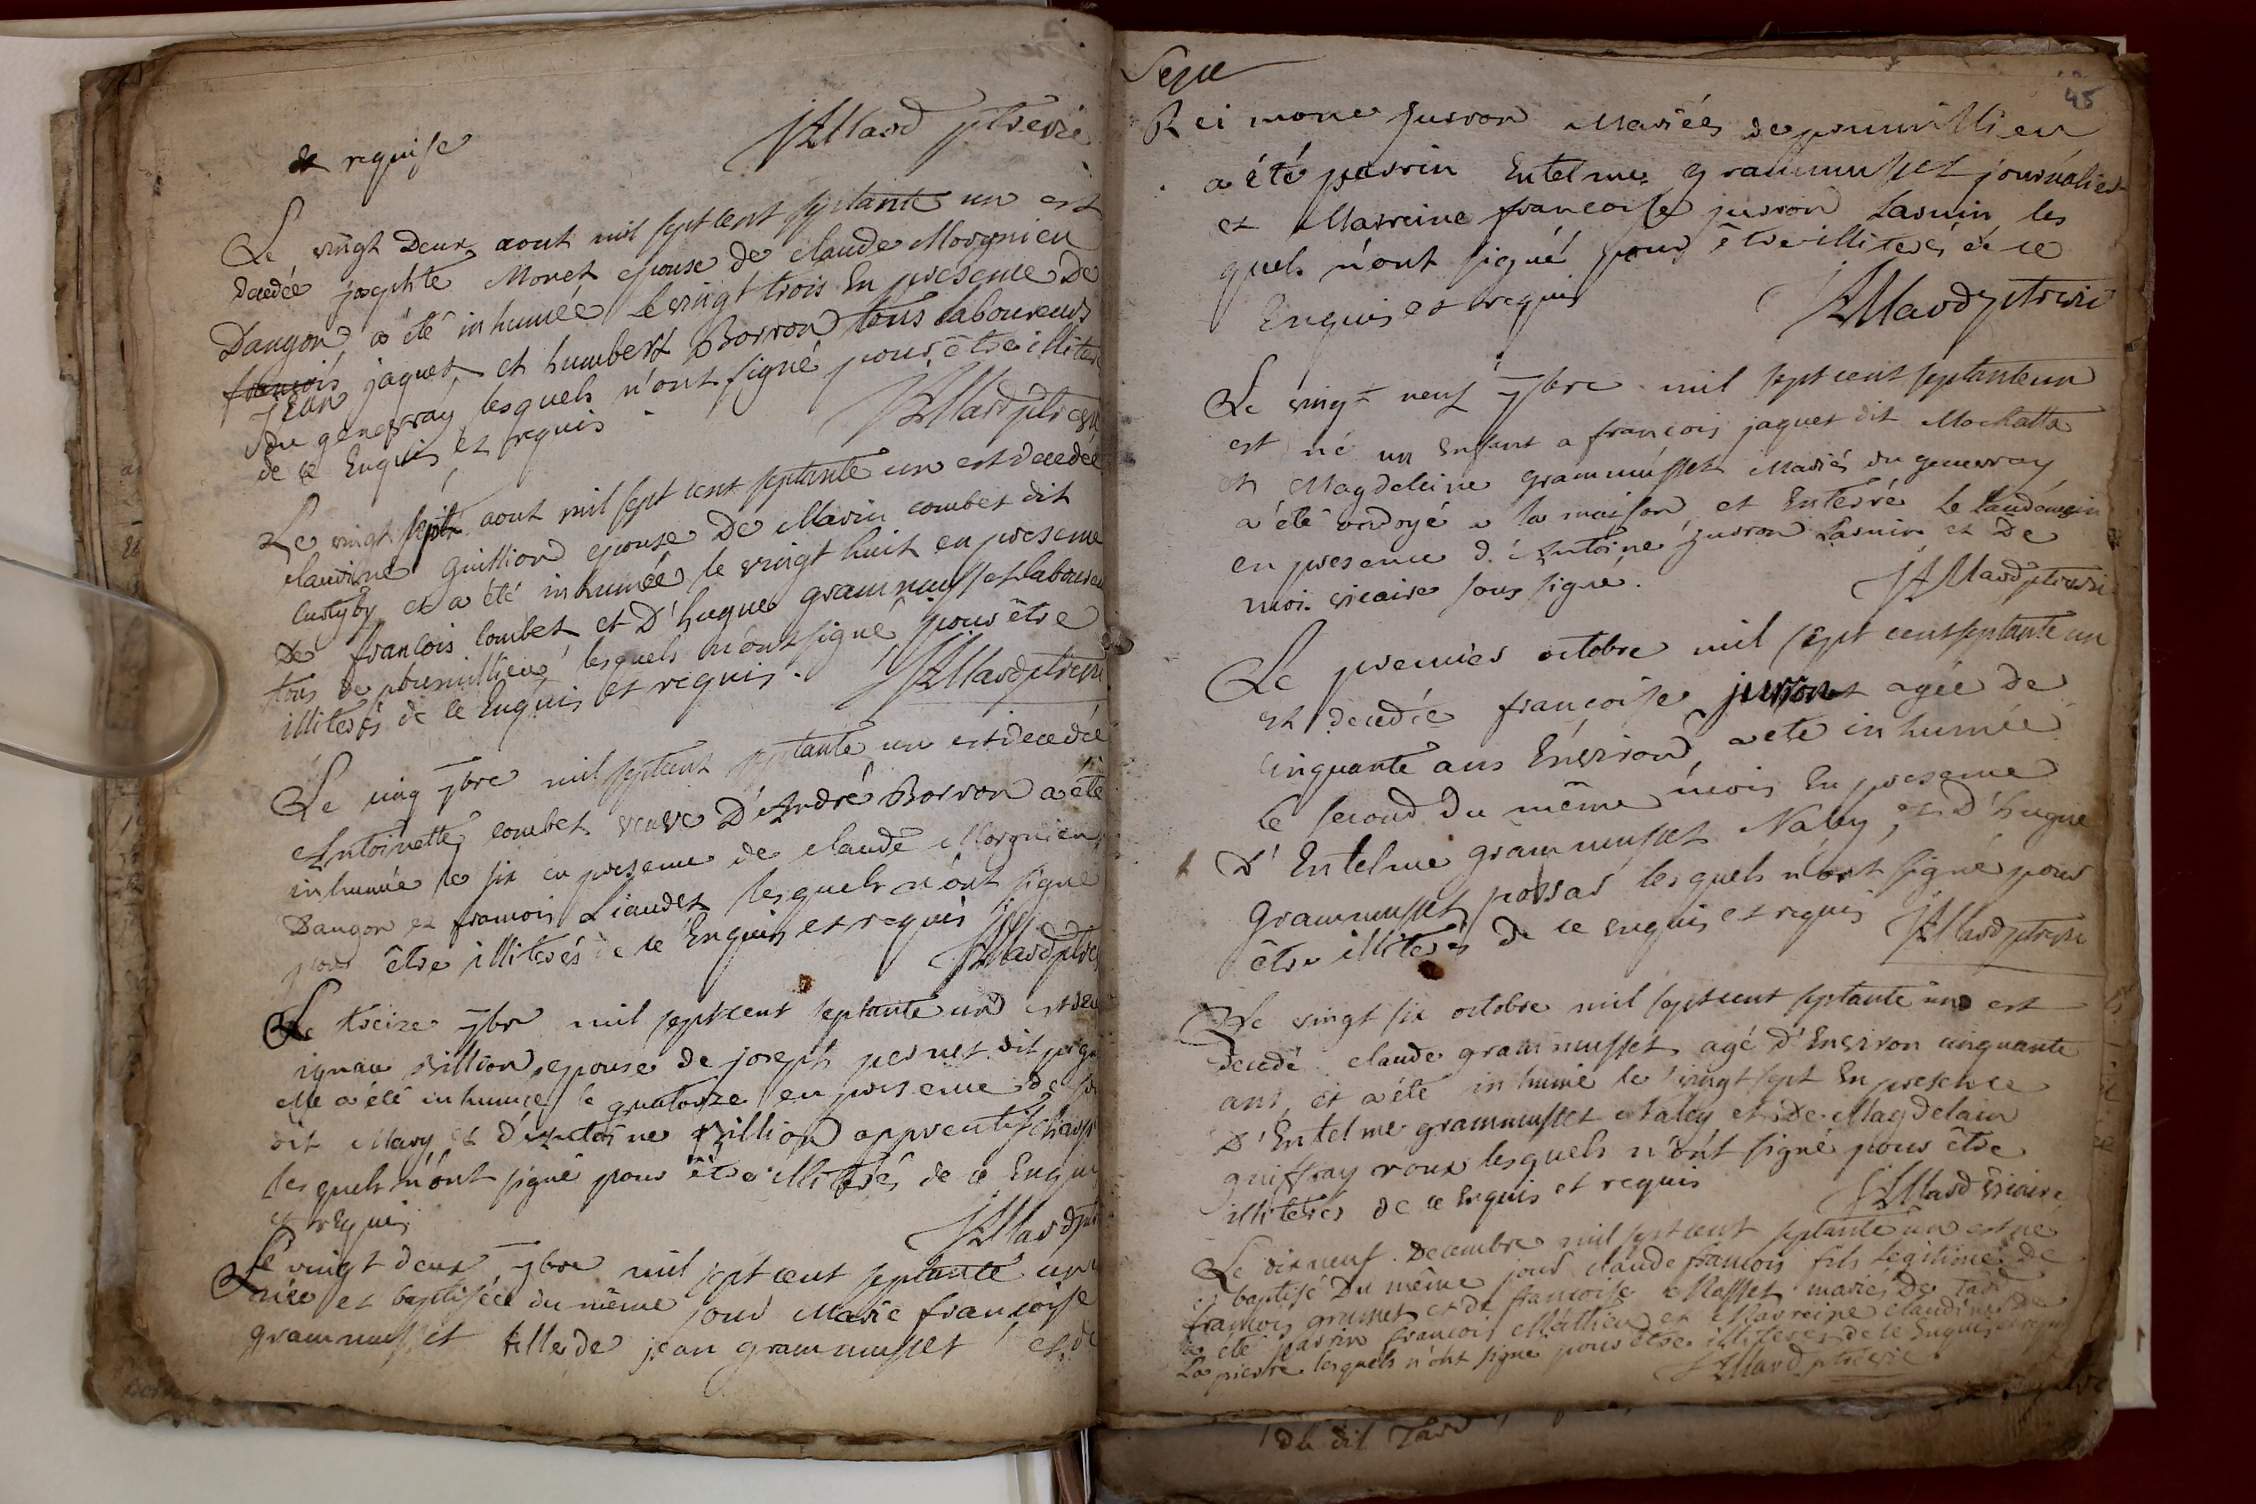 et requise
JAllard ptre vic
Le vingt Deux aout mil sept cent septante un est
decedée josephte Monet epouse de claude Morgnieu
Dangon a été inhumée le vingt trois En présence De
françois jaquet et humbert Borron tous laboureurs
jean
du genevray lesquels n'ont signé pour être illiterés
de ce Enquis et requis
JAllard ptre vic
Le vingt sept aout mil sept cent septante un est decedée
claudine Guillion epouse De Marin combet dit
et a été inhumée le vingt huit en presence
De françois combet et D'hugue grammusset laboureurs
tous de poumillieu lesquels n'ont signé pour être
illiterés de ce Enquis et requis.
JAllard ptre vic
Le cinq 7bre mil sept cent septante un est decedée
Antoinette combet veuve D'André Borron a été
inhumée le six en presence de claude Morgnieu
Dangon et francois Liaudet lesquels n'ont signé
pour être illiterés de ce Enquis et requis
JAllard ptre
Le treize 7bre mil sept cent septante un est
Billion epouse de joseph pernet dit
elle a été inhumée le quatorze en presence de
dit Mary et d'Antoine Billion apprentif
lesquels n'ont signé pour être illiterés de ce Enquis
et requis
JAllard ptre
Le vingt deux 7bre mil sept cent septante un
née et baptisée du même jour Marie françoise
grammusset fille de jean grammusset et de
45
Reimone jusron Mariées de poumillieu
a été parrin Entelme grammusset journalier
et Marreine françoise jusron Lasnin les
quels n'ont signé pour être illiterés de ce
Enquis et requis
JAllard ptre vic
Le vingt neuf 7bre mil sept cent septante un
est né un Enfant a françois jaquet dit Mochatta
et Magdeleine grammusset Mariés du genevray
a été ondoyé a la maison et Enterré le landemain
en presence d'Antoine jusron Lasnin et De
moi vicaire sous signé.
JAllard ptre vic
Le premier octobre mil sept cent septante un
est decedée françoise jusron agée de
cinquante ans Environ a ete inhumée
le second du même mois En presence
D'Entelme grammusset Naley, et D'hugue
grammusset possas lesquels n'ont signé pour
être illiterés De ce enquis et requis
JAllard ptre vic
Le vingt six octobre mil sept cent septante un est
decedé claude grammusset agé d'Environ cinquante
ans, et a été inhumé le vingt sept En presence
D'Entelme grammusset Naley et De Magdelain
guiffray roux lesquels n'ont signé pour être
illiterés de ce Enquis et requis
JAllard vicaire
Le dix neuf Decembre mil sept cent septante un est né
et baptisé Du même jour claude francois fils legitime de
francois grumet et de francoise Masset mariés De Tard
a été parrin francois Mattieu et Marreine claudine de
La pierre lesquels n'ont signé pour être illiterés de ce Enquis et requis
JAllard ptre vic
du dit Tard